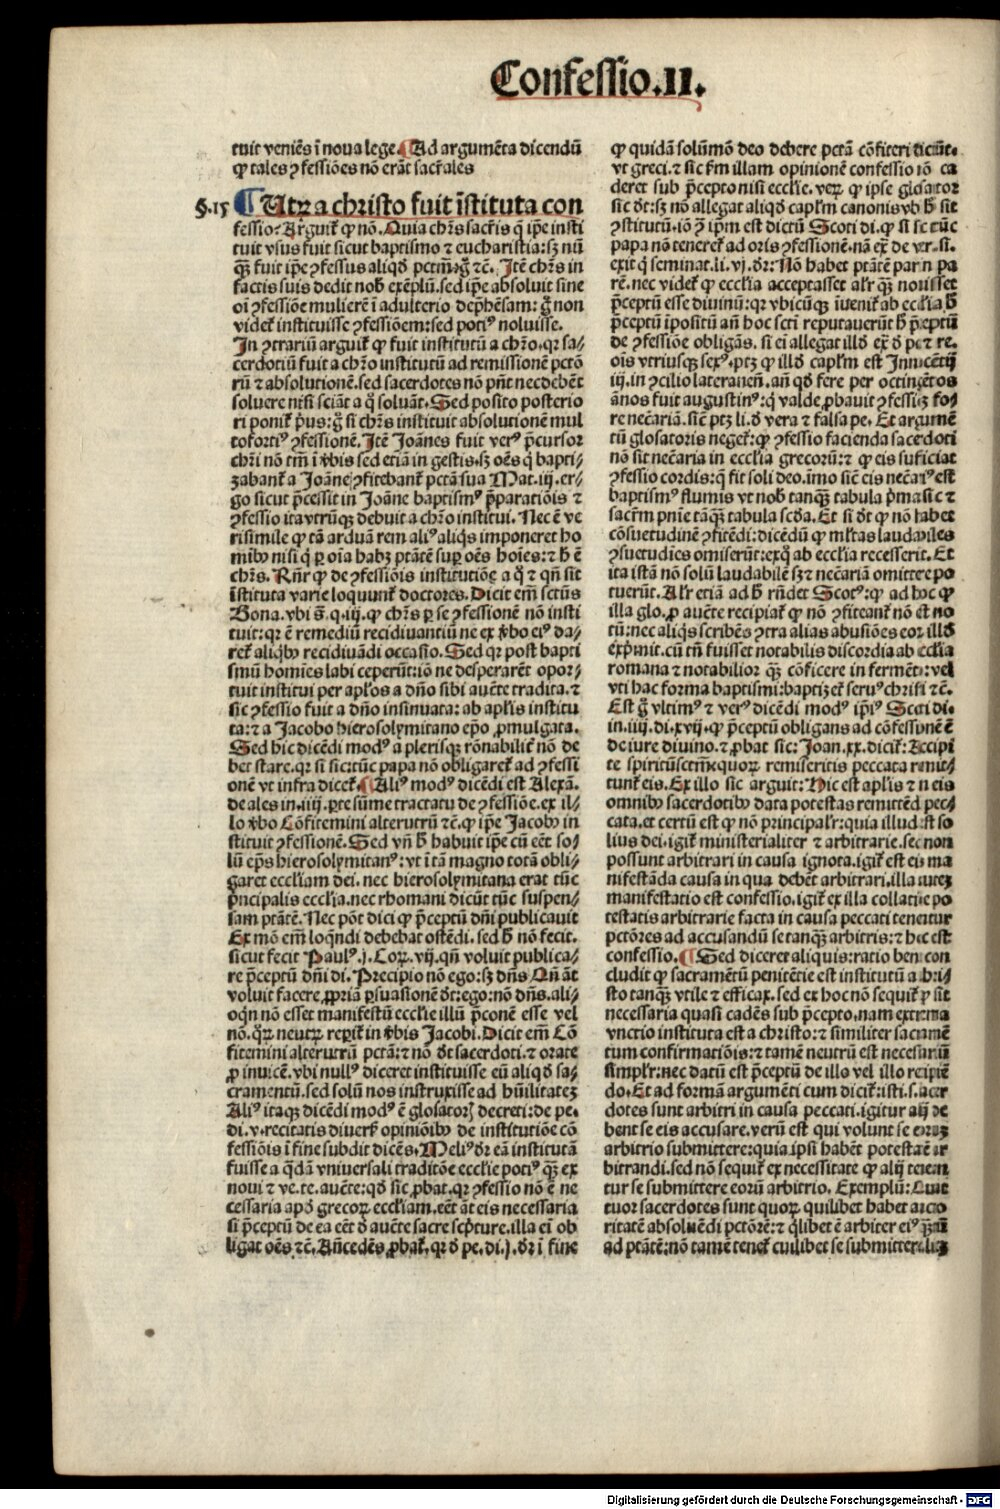 Confessio.II.
tuit veniēs ī noua lege. Ad argumēta dicendū
ꝙ tales ꝯfessiōes nō erāt sacr̄ales
§.15 Utrꝝ a christo fuit īstituta con
fessio? Arguit̄ ꝙ nō. Quia chr̄s sacr̄is q̄ ip̄e insti
tuit vsus fuit sicut baptismo ⁊ eucharistia: sꝫ nū
qꝫ fuit ip̄e ꝯfessus aliqđ pctm̄. g̊ ⁊c̄. Itē chr̄s in
factis suis dedit nob̄ exēplū. sed ip̄e absoluit sine
oī ꝯfessiōe mulierē ī adulterio dep̄hēsam: g̊ non
videt̄ instituisse ꝯfessiōem: sed potiꝰ noluisse.
In ꝯtrariū arguit̄ ꝙ fuit institutū a chr̄o. qꝛ sa-
cerdotiū fuit a chr̄o institutū ad remissionē pctō
rū ⁊ absolutionē. sed sacerdotes nō pn̄t nec debēt
soluere nisi sciāt a q̊ soluāt. Sed posito posterio
ri ponit̄ p̄us: g̊ si chr̄s instituit absolutionē mul
tofortiꝰ ꝯfessionē. Itē Joānes fuit verꝰ p̄cursor
chr̄i nō tm̄ ī v̄bis sed etiā in gestis. sꝫ oēs q̄ bapti-
zabant̄ a Joāne ꝯfitebant̄ pctā sua Mat. iij. er-
go sicut p̄cessit in Joāne baptismꝰ p̄parationis ⁊
ꝯfessio ita vtrūqꝫ debuit a chr̄o institui. Nec ē ve
risimile ꝙ tā arduā rem aliꝰ aliqs imponeret ho
mībꝰ nisi q̄ ꝑ oīa habꝫ ptātē suꝑ oēs hoīes: ⁊ h̄ ē
chr̄s. Rn̄r ꝙ de ꝯfessiōis institutiōe a q̊ ⁊ qn̄ sit
īstituta varie loquunt̄ doctores. Dicit em̄ sctūs
Bona. vbi s̄. q. iij. ꝙ chr̄s ꝑ se ꝯfessionē nō insti
tuit: qꝛ ē remediū recidiuantiū ne ex v̄bo eiꝰ da-
ret̄ aliqb̄ recidiuādi occasio. Sed qꝛ post bapti
smū homīes labi ceperūt: iō ne desperarēt opor-
tuit institui per aplōs a dn̄o sibi aucte tradita. ⁊
sic ꝯfessio fuit a dn̄o insinuata: ab aplīs institu
ta: ⁊ a Jacobo hierosolymitano ep̄o ꝓmulgata.
Sed hic dicēdi modꝰ a plerisqꝫ rōnabilit̄ nō de
bet stare. qꝛ si sic: tūc papa nō obligaret̄ ad ꝯfessi
onē vt infra dicet̄. Aliꝰ modꝰ dicēdi est Alexā.
de ales in. iiij. ꝑte sūme tractatu de ꝯfessiōe. ex il-
lo v̄bo Cōfitemini alterutrū ⁊c̄. ꝙ ip̄e Jacobꝰ in
stituit ꝯfessionē. Sed vn̄ h̄ habuit ip̄e cū eēt so-
lū ep̄s hierosolymitanꝰ: vt ī tā magno totā obli-
garet eccl̄iam dei. nec hierosolymitana erat tūc
p̄ncipalis eccl̄ia. nec rhomani dicūt tūc suspen-
sam ptātē. Nec pōt dici ꝙ p̄ceptū dn̄i publicauit
Ex mō em̄ loqndi debebat ostēdi. sed h̄ nō fecit.
sicut fecit Paulꝰ. j. Coꝝ. vij. qn̄ voluit publica-
re p̄ceptū dn̄i di. Precipio nō ego: sꝫ dn̄s. Qn̄ āt
voluit facere ꝓpriā ꝑsuasionē d̄t: ego: nō dn̄s. ali-
oqn nō esset manifestū eccl̄ie illū p̄conē esse vel
nō. q̊ꝝ neutꝝ reꝑit̄ in v̄bis Jacobi. Dicit em̄ Cō
fitemini alterutrū pctā: ⁊ nō d̄t sacerdoti. ⁊ orate
ꝓ inuicē. vbi nullꝰ diceret instituisse eū aliqđ sa-
cramentū. sed solū nos instruxisse ad hūilitateꝫ
Aliꝰ itaqꝫ dicēdi modꝰ ē glosatorꝫ decreti: de pe.
di. v. recitatis diuers̄ opiniōibꝰ de institutiōe cō
fessiōis ī fine subdit dicēs. Meliꝰ dr̄ eā institutā
fuisse a q̄dā vniuersali traditōe eccl̄ie potiꝰ qꝫ ex
noui ⁊ ve. te. aucte: qđ sic ꝓbat. qꝛ ꝯfessio nō ē ne
cessaria apđ grecoꝝ eccl̄iam. eēt āt eis necessaria
si p̄ceptū de ea eēt đ aucte sacre scpture. illa eī ob
ligat oēs ⁊c̄. Añcedēs ꝓbat̄. qꝛ đ pe. di. j. dr̄ ī fine
ꝙ quidā solūmō deo debere pctā cōfiteri dicūt.
vt greci. ⁊ sic s̄m illam opinionē confessio iō ca
deret sub p̄cepto nisi eccl̄ie. veꝝ ꝙ ipse glosator
sic d̄t: sꝫ nō allegat aliqđ cap̄lm canonis vb̄ h̄ sit
ꝯstitutū. iō ꝯ̄ ip̄m est dictū Scoti di. ꝙ si sic tūc
papa nō teneret̄ ad oris ꝯfessionē. nā ex̄ de ver. si.
exit q̄ seminat. li. vj. dr̄: Nō habet ptātē par in pa
rē. nec videt̄ ꝙ eccl̄ia acceptasset al̄r qꝫ nouisset
p̄ceptū esse diuinū: qꝛ vbicūqꝫ īuenit̄ ab eccl̄ia h̄
p̄ceptū īpositū añ hoc scti reputauerūt h̄ p̄ceptū
de ꝯfessiōe obligās. si ei allegat illđ ex̄ đ pe ⁊ re.
oīs vtriusqꝫ sexꝰ. ptꝫ ꝙ illđ cap̄lm est Innocētij
iij. in ꝯcilio lateraneñ. añ qđ fere per octingētos
ānos fuit augustinꝰ: q̄ valde ꝓbauit ꝯfessiōꝫ fo-
re necāriā. sic̄ ptꝫ li. đ vera ⁊ falsa pe. Et argumē
tū glosatoris neget̄: ꝙ ꝯfessio facienda sacerdoti
nō sit necāria in eccl̄ia grecorū: ⁊ ꝙ eis suficiat
ꝯfessio cordis: q̄ fit soli deo. īmo sic̄ eis necāriꝰ est
baptismꝰ flumis vt nob̄ tanqꝫ tabula p̄ma sic ⁊
sacrm̄ pnīe tāqꝫ tabula scđa. Et si d̄t ꝙ nō habet
cōsuetudinē ꝯfitēdi: dicēdū ꝙ ml̄tas laudabiles
ꝯsuetudīes omiserūt: ex q̊ ab eccl̄ia recesserit. Et
ita istā nō solū laudabilē sꝫ ⁊ necāriam omittere po
tuerūt. Al̄r etiā ad h̄ rn̄det Scotꝰ: ꝙ ad hoc ꝙ
illa glo. ꝓ aucte recipiat̄ ꝙ nō ꝯfiteant̄ nō est no
tū: nec aliqs scribēs ꝯtra alias abusiōes eoꝝ illđ
exp̄mit. cū tn̄ fuisset notabilis discordia ab eccl̄ia
romana ⁊ notabilior qꝫ cōficere in fermēto: vel
vti hac forma baptismi: baptizet̄ seruꝰ christi ⁊c̄.
Est g̊ vltimꝰ ⁊ verꝰ dicēdi modꝰ ip̄iꝰ Scoti di.
in. iiij. di. xvij. ꝙ p̄ceptū obligans ad cōfessionē ē
de iure diuino. ⁊ ꝓbat sic: Joan. xx. dicit̄: Accipi
te spiritūsctm̄ quoꝝ remiseritis peccata remit-
tunt̄ eis. Ex illo sic arguit: Hic est aplīs ⁊ n̄ eis
omnibꝰ sacerdotibꝰ data potestas remittēd̄ pec-
cata. et certū est ꝙ nō principal̄r: quia illud est so
lius dei. igit̄ ministerialiter ⁊ arbitrarie. sed non
possunt arbitrari in causa ignota. igit̄ est eis ma
nifestāda causa in qua debēt arbitrari. illa auteꝫ
manifestatio est confessio. igit̄ ex illa collatiōe po
testatis arbitrarie facta in causa peccati tenentur
pctōres ad accusandū se tanqꝫ arbitris: ⁊ hec est
confessio. Sed diceret aliquis: ratio bene con
cludit ꝙ sacramētū penitētie est institutū a chri-
sto tanqꝫ vtile ⁊ efficax. sed ex hoc nō sequit̄ ꝙ sit
necessaria quasi cadēs sub p̄cepto. nam extrema
vnctio instituta est a christo: ⁊ similiter sacramē
tum confirmatiōis: ⁊ tamē neutrū est necesariū
simpl̄r: nec datū est p̄ceptū de illo vel illo recipiē
do. Et ad formā argumēti cum dicit̄: isti. s. acer
dotes sunt arbitri in causa peccati. igitur alij de
bent se eis accusare. verū est qui volunt se eoꝝ
arbitrio submittere: quia ipsi habēt potestatē ar
bitrandi. sed nō sequit̄ ex necessitate ꝙ alij tenean
tur se submittere eorū arbitrio. Exemplū: Quat
tuor sacerdotes sunt quoꝝ quilibet habet aucto
ritatē absoluēdi pctōrē: ⁊ q̄libet ē arbiter eiꝰ qꝫtū
ad ptātē: nō tamē tenet̄ cuilibet se submittere. licꝫ
Digitalisierung gefördert durch die Deutsche Forschungsgemeinschaft - DFG